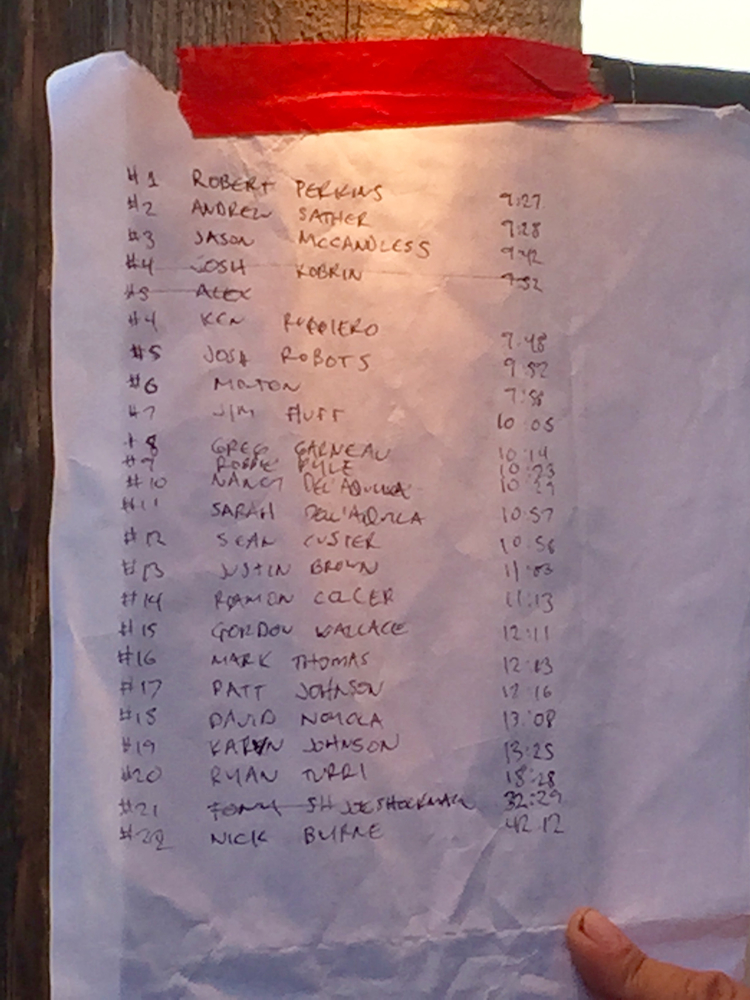 #1 ROBERT PERKINS 9:27
#2 ANDREW SATHER 9:28
#3 JASON MCCANDLESS 9:42
#4 JOSH KOBRIN 9:52
#5 ALEX
#4 KEN RUGGIERO 9:48
#5 JOSH ROBOTS 9:52
#6 MILTON 9:58
#7 JIM HUFF 10:05
#8 GREG GARNEAU 10:14
#9 ROBBIE KYLE 10:23
#10 NANCY DELL'AQUILA 10:29
#11 SARAH DELL'AQUILA 10:57
#12 SEAN CUSTER 10:56
#13 JUSTIN BROWN 11:03
#14 RAMON COLCER 11:13
#15 GORDON WALLACE 12:11
#16 MARK THOMAS 12:13
#17 PATT JOHNSON 12:16
#18 DAVID NOYOLA 13:08
#19 KARYN JOHNSON 13:25
#20 RYAN TURRI 18:28
#21 TONY SH JOE SHERMAN 32:29
#22 NICK BYRNE 42:12